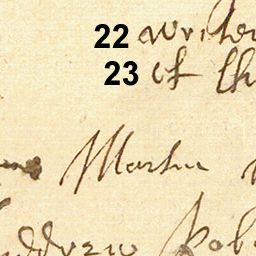 22 writer
23 of th
Martin
Andrew Rob